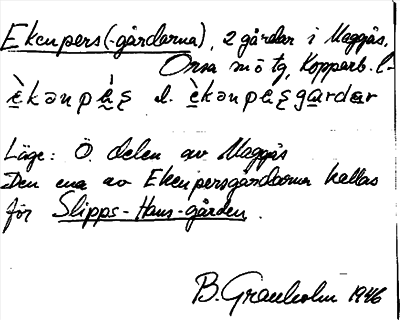 Ekenpers (-gårdarna), 2 gårdar i Maggås,
Orsa sn ö tg, Kopparb. l-
è̱kənpæ̱̀ʂ el. è̱kənpæʂga̱rdar
Läge: Ö. delen av Maggås
Den ena av Ekenpersgårdarna kallas
för Slipps-Hans-gården.
B. Granholm 1946